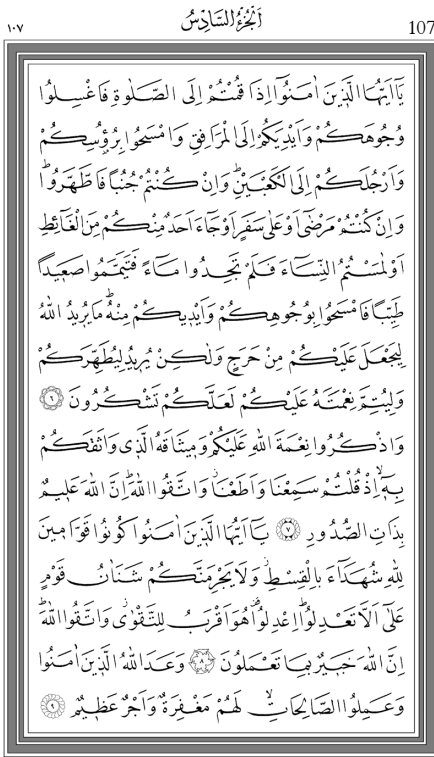 107 اَلْجُزْءُ السَّادِسُ ١٠٧
يَٓا اَيُّهَا الَّذ۪ينَ اٰمَنُٓوا اِذَا قُمْتُمْ اِلَى الصَّلٰوةِ فَاغْسِلُوا
وُجُوهَكُمْ وَاَيْدِيَكُمْ اِلَى الْمَرَافِقِ وَامْسَحُوا بِرُؤُ۫سِكُمْ
وَاَرْجُلَكُمْ اِلَى الْكَعْبَيْنِۜ وَاِنْ كُنْتُمْ جُنُبًا فَاطَّهَّرُواۜ
وَاِنْ كُنْتُمْ مَرْضٰٓى اَوْ عَلٰى سَفَرٍ اَوْ جَٓاءَ اَحَدٌ مِنْكُمْ مِنَ الْغَٓائِطِ
اَوْ لٰمَسْتُمُ النِّسَٓاءَ فَلَمْ تَجِدُوا مَٓاءً فَتَيَمَّمُوا صَع۪يدًا
طَيِّبًا فَامْسَحُوا بِوُجُوهِكُمْ وَاَيْد۪يكُمْ مِنْهُۜ مَا يُر۪يدُ اللّٰهُ
لِيَجْعَلَ عَلَيْكُمْ مِنْ حَرَجٍ وَلٰكِنْ يُر۪يدُ لِيُطَهِّرَكُمْ
وَلِيُتِمَّ نِعْمَتَهُ عَلَيْكُمْ لَعَلَّكُمْ تَشْكُرُونَ ٦
وَاذْكُرُوا نِعْمَةَ اللّٰهِ عَلَيْكُمْ وَم۪يثَاقَهُ الَّذ۪ي وَاثَقَكُمْ
بِه۪ٓۙ اِذْ قُلْتُمْ سَمِعْنَا وَاَطَعْنَاۘ وَاتَّقُوا اللّٰهَۜ اِنَّ اللّٰهَ عَل۪يمٌ
بِذَاتِ الصُّدُورِ ٧ يَٓا اَيُّهَا الَّذ۪ينَ اٰمَنُوا كُونُوا قَوَّام۪ينَ
لِلّٰهِ شُهَدَٓاءَ بِالْقِسْطِۘ وَلَا يَجْرِمَنَّكُمْ شَنَاٰنُ قَوْمٍ
عَلٰٓى اَلَّا تَعْدِلُواۜ اِعْدِلُوا۠ هُوَ اَقْرَبُ لِلتَّقْوٰىۘ وَاتَّقُوا اللّٰهَۜ
اِنَّ اللّٰهَ خَب۪يرٌ بِمَا تَعْمَلُونَ ٨ وَعَدَ اللّٰهُ الَّذ۪ينَ اٰمَنُوا
وَعَمِلُوا الصَّالِحَاتِۙ لَهُمْ مَغْفِرَةٌ وَاَجْرٌ عَظ۪يمٌ ٩